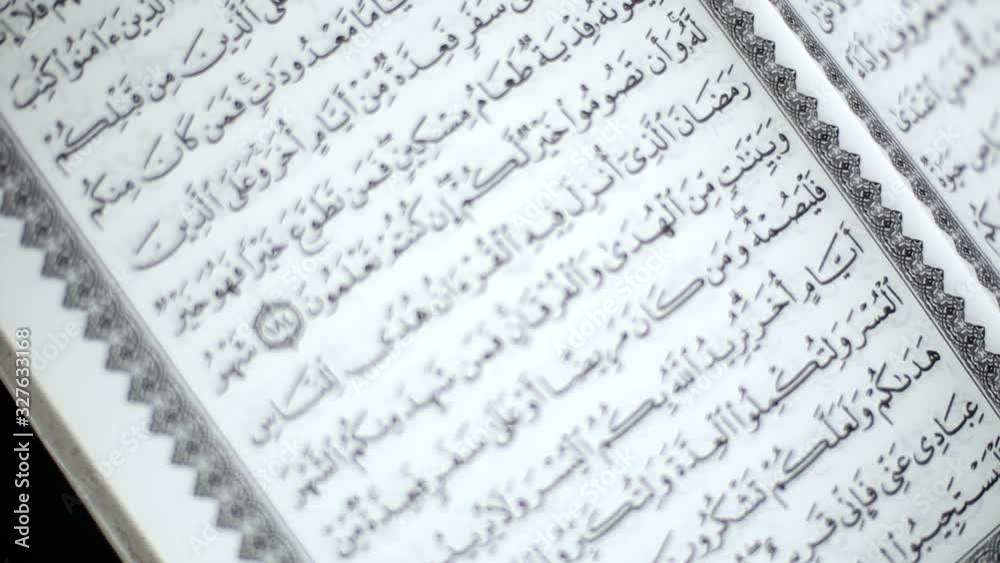 ٱلَّذِينَ ءَامَنُوا۟ كُتِبَ
عَلَى ٱلَّذِينَ مِن قَبْلِكُمْ
مَّعْدُودَٰتٍ ۚ فَمَن كَانَ مِنكُم
سَفَرٍ فَعِدَّةٌ مِّنْ أَيَّامٍ أُخَرَ ۚ وَعَلَى ٱلَّذِينَ
فِدْيَةٌ طَعَامُ مِسْكِينٍ ۖ فَمَن تَطَوَّعَ خَيْرًا فَهُوَ خَيْرٌ
لَّهُۥ ۚ وَأَن تَصُومُوا۟ خَيْرٌ لَّكُمْ ۖ إِن كُنتُمْ تَعْلَمُونَ ١٨٤ شَهْرُ
رَمَضَانَ ٱلَّذِىٓ أُنزِلَ فِيهِ ٱلْقُرْءَانُ هُدًى لِّلنَّاسِ
وَبَيِّنَٰتٍ مِّنَ ٱلْهُدَىٰ وَٱلْفُرْقَانِ ۚ فَمَن شَهِدَ مِنكُمُ ٱلشَّهْرَ
فَلْيَصُمْهُ ۖ وَمَن كَانَ مَرِيضًا أَوْ عَلَىٰ سَفَرٍ فَعِدَّةٌ مِّنْ
أَيَّامٍ أُخَرَ ۗ يُرِيدُ ٱللَّهُ بِكُمُ ٱلْيُسْرَ وَلَا يُرِيدُ
ٱلْعُسْرَ وَلِتُكْمِلُوا۟ ٱلْعِدَّةَ وَلِتُكَبِّرُوا۟
هَدَىٰكُمْ وَلَعَلَّكُمْ تَشْكُرُونَ
عِبَادِى عَنِّى فَإِنِّى قَرِيبٌ
Adobe Stock | #327633168